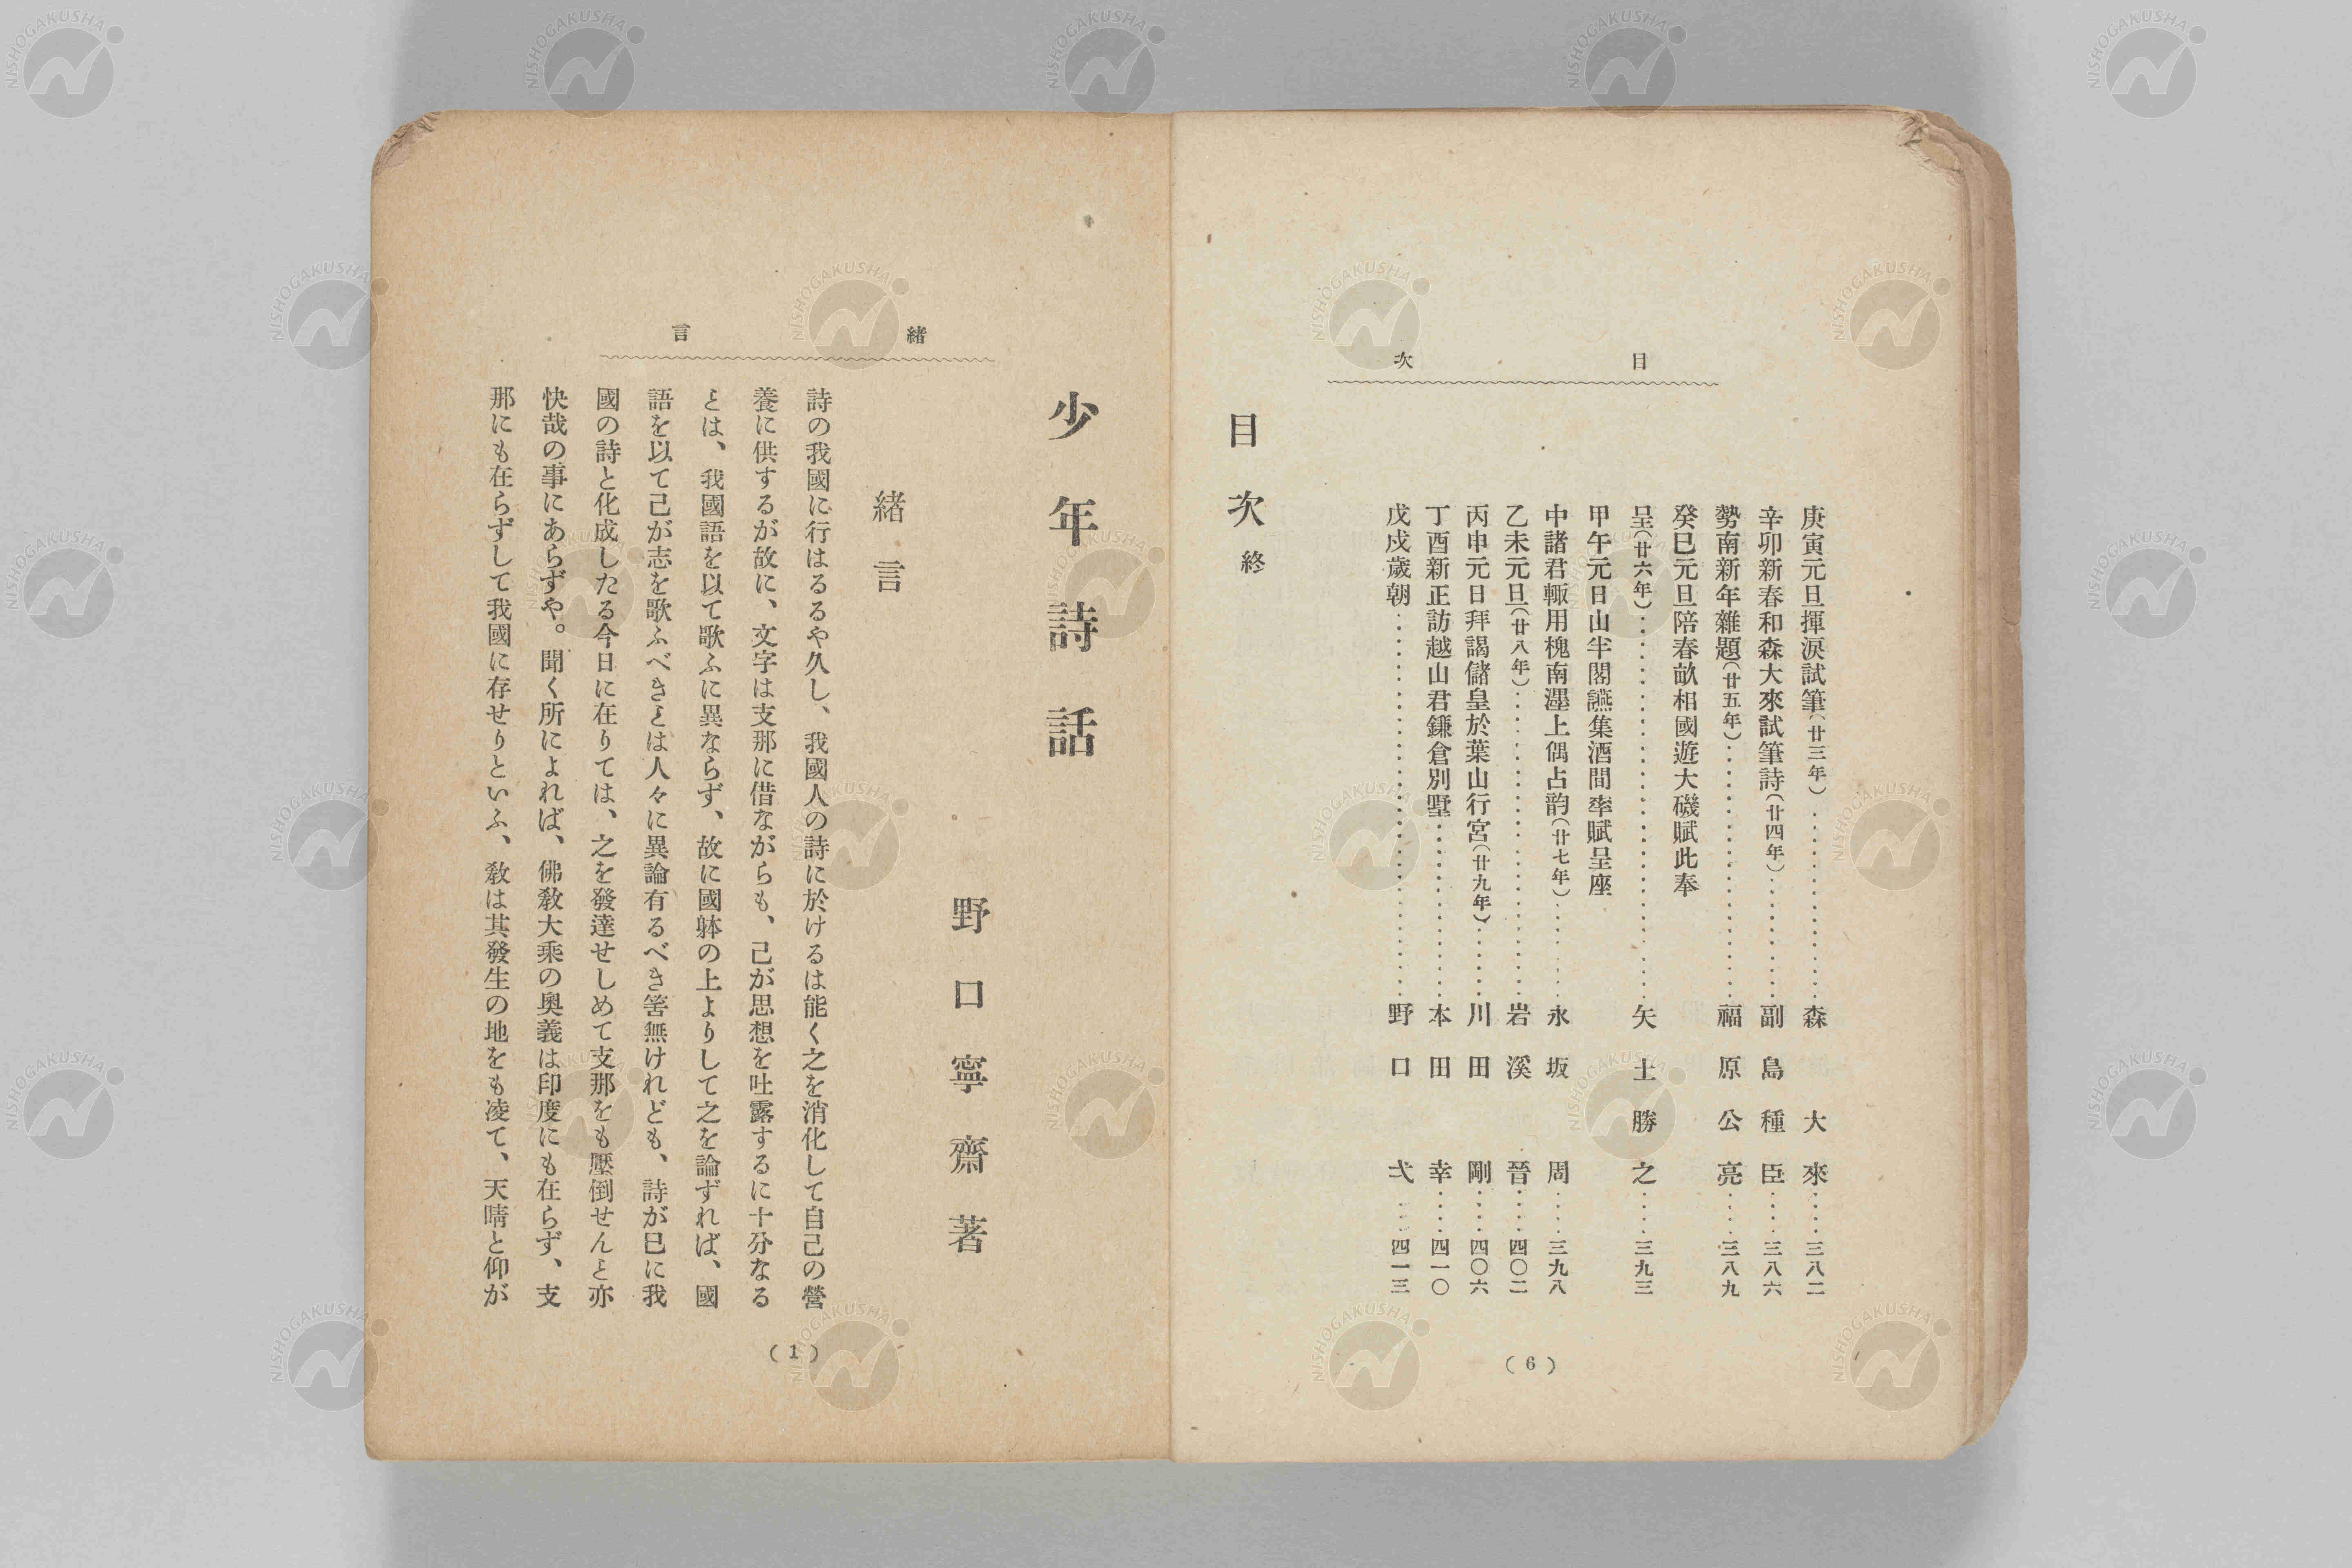 目次
庚寅元旦揮淚試筆(廿三年)‥‥‥‥‥‥‥‥森大來‥‥三八二
辛卯新春和森大來試筆詩(廿四年)‥‥‥‥‥副島種臣‥‥三八六
勢南新年雜題(廿五年)‥‥‥‥‥‥‥‥‥‥福原公亮‥‥三八九
癸巳元旦陪春畝相國遊大磯賦此奉
呈(廿六年)‥‥‥‥‥‥‥‥‥‥‥‥‥‥矢土勝之‥‥三九三
甲午元日山半閣讌集酒間率賦呈座
中諸君輙用槐南湿上偶占韵(廿七年)‥‥‥‥永坂周‥‥三九八
乙未元旦(廿八年)‥‥‥‥‥‥‥‥‥‥‥岩溪晉‥‥四〇二
丙申元日拜謁儲皇於葉山行宮(廿九年)‥‥‥川田剛‥‥四〇六
丁酉新正訪越山君鎌倉別墅‥‥‥‥‥‥‥‥本田幸‥‥四一〇
戊戌歲朝‥‥‥‥‥‥‥‥‥‥‥‥‥‥‥野口弌‥‥四一三
目次終
(6)
緒言
少年詩話
野口寧齋著
緒言
詩の我國に行はるるや久し、我國人の詩に於けるは能く之を消化して自己の營
養に供するが故に、文字は支那に借ながらも、己が思想を吐露するに十分なる
とは、我國語を以て歌ふに異ならず、故に國躰の上よりして之を論ずれば、國
語を以て己が志を歌ふべきとは人々に異論有るべき筈無けれども、詩が巳に我
國の詩と化成したる今日に在りては、之を發達せしめて支那をも壓倒せんと亦
快哉の事にあらずや。聞く所によれば、佛敎大乘の奧義は印度にも在らず、支
那にも在らずして我國に存せりといふ、敎は其發生の地をも凌て、天晴と仰が
(1)
NISHOGAKUSHA